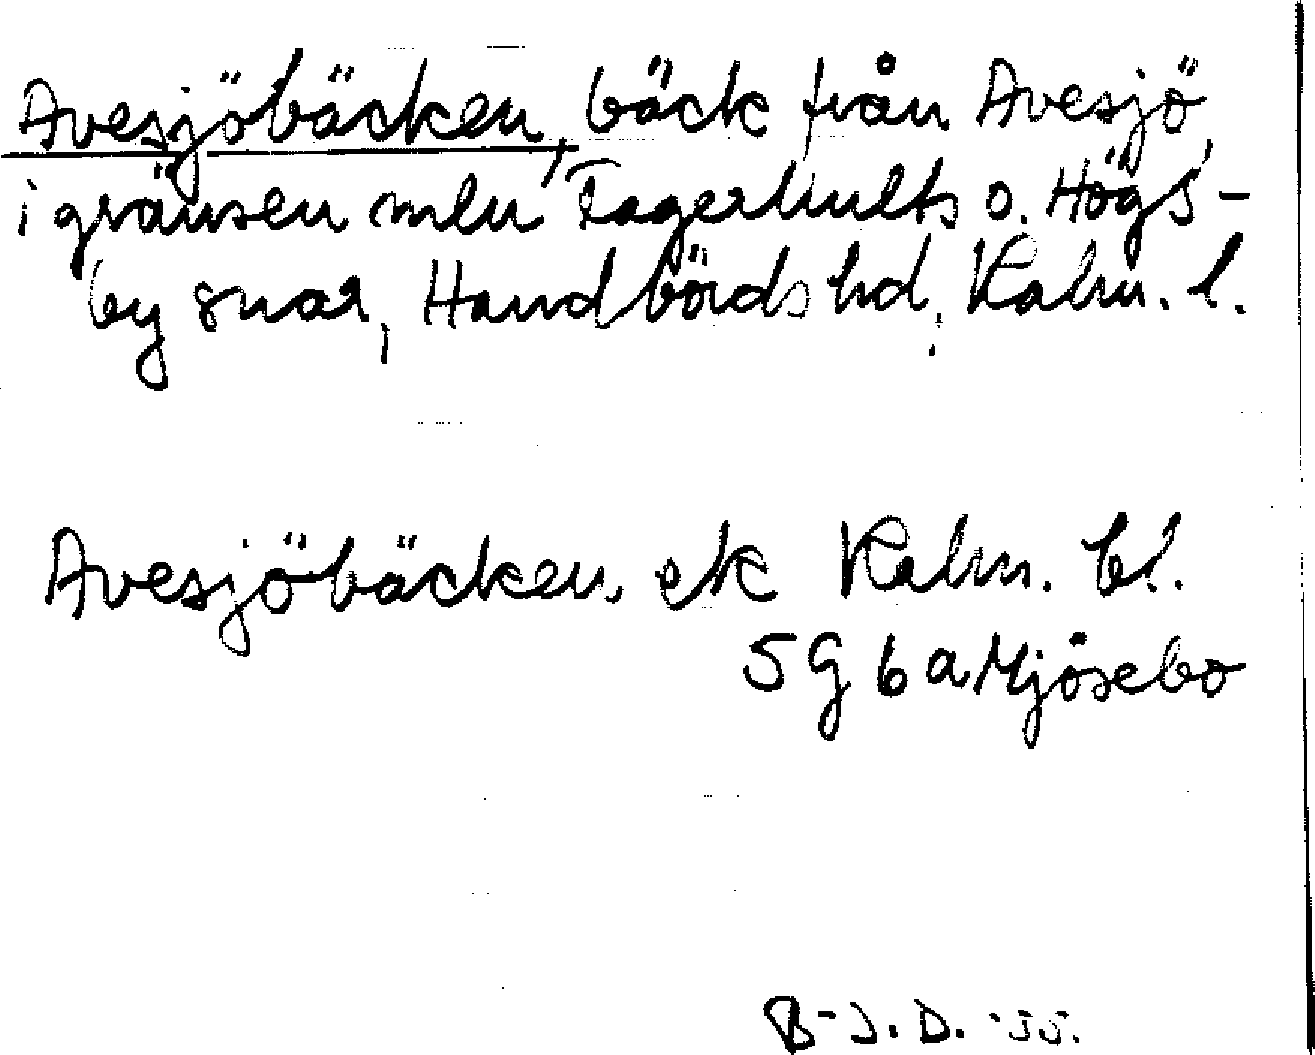 Avesjöbäcken, bäck från Avesjö,
i gränsen mln Fagerhults o. Högs-
by snar, Handbörds hd, Kalm. l.
Avesjöbäcken, ek Kalm. bl.
5G 6a Mjösebo
B-J.D. -55.